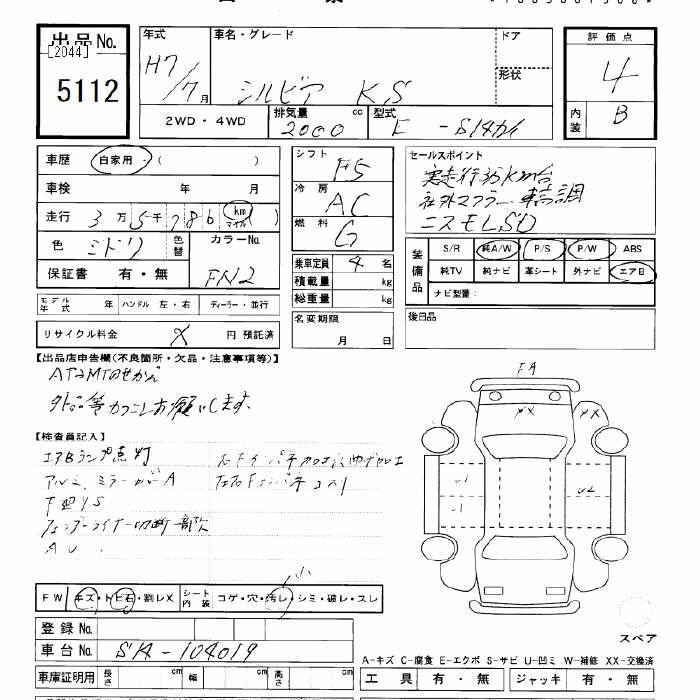 出品No.
[2044]
5112
年式
H7/7月
車名・グレード
シルビア KS
ドア
形状
評価点
4
内装
B
2WD・4WD
排気量 2000 cc
型式 E-S14カイ
車歴 自家用・( )
車検 年 月
走行 3万5千786 km マイル ( )
色 ミドリ 色替
カラーNo. FN2
保証書 有・無
モデル年式 年 ハンドル 左・右 ディーラー・並行
リサイクル料金 X 円 預託済
シフト F5
冷房 AC
燃料 G
乗車定員 4 名
積載量 kg
総重量 kg
名変期限
月 日
セールスポイント
実走行35km台
社外マフラー 車高調
ニスモLSD
装備品
S/R 純A/W P/S P/W ABS
純TV 純ナビ 革シート 外ナビ エアB
ナビ型番:
後日品
【出品店申告欄(不良箇所・欠品・注意事項等)】
AT→MTのせかえ
お願いします。
【検査員記入】
エアBランプ点灯
アルミ、ミラーガリA
下廻りS
フェンダーライナー切断一部欠
AU.
FA
XX
U1
U2
FW キズ・トビ石・割レX シート内装 コゲ・穴・汚レ・シミ・破レ・スレ
小
登録No.
車台No. S14-104019
車庫証明用 長さ cm 幅 cm 高さ cm
スペア
A-キズ C-腐食 E-エクボ S-サビ U-凹ミ W-補修 XX-交換済
工具 有・無 ジャッキ 有・無